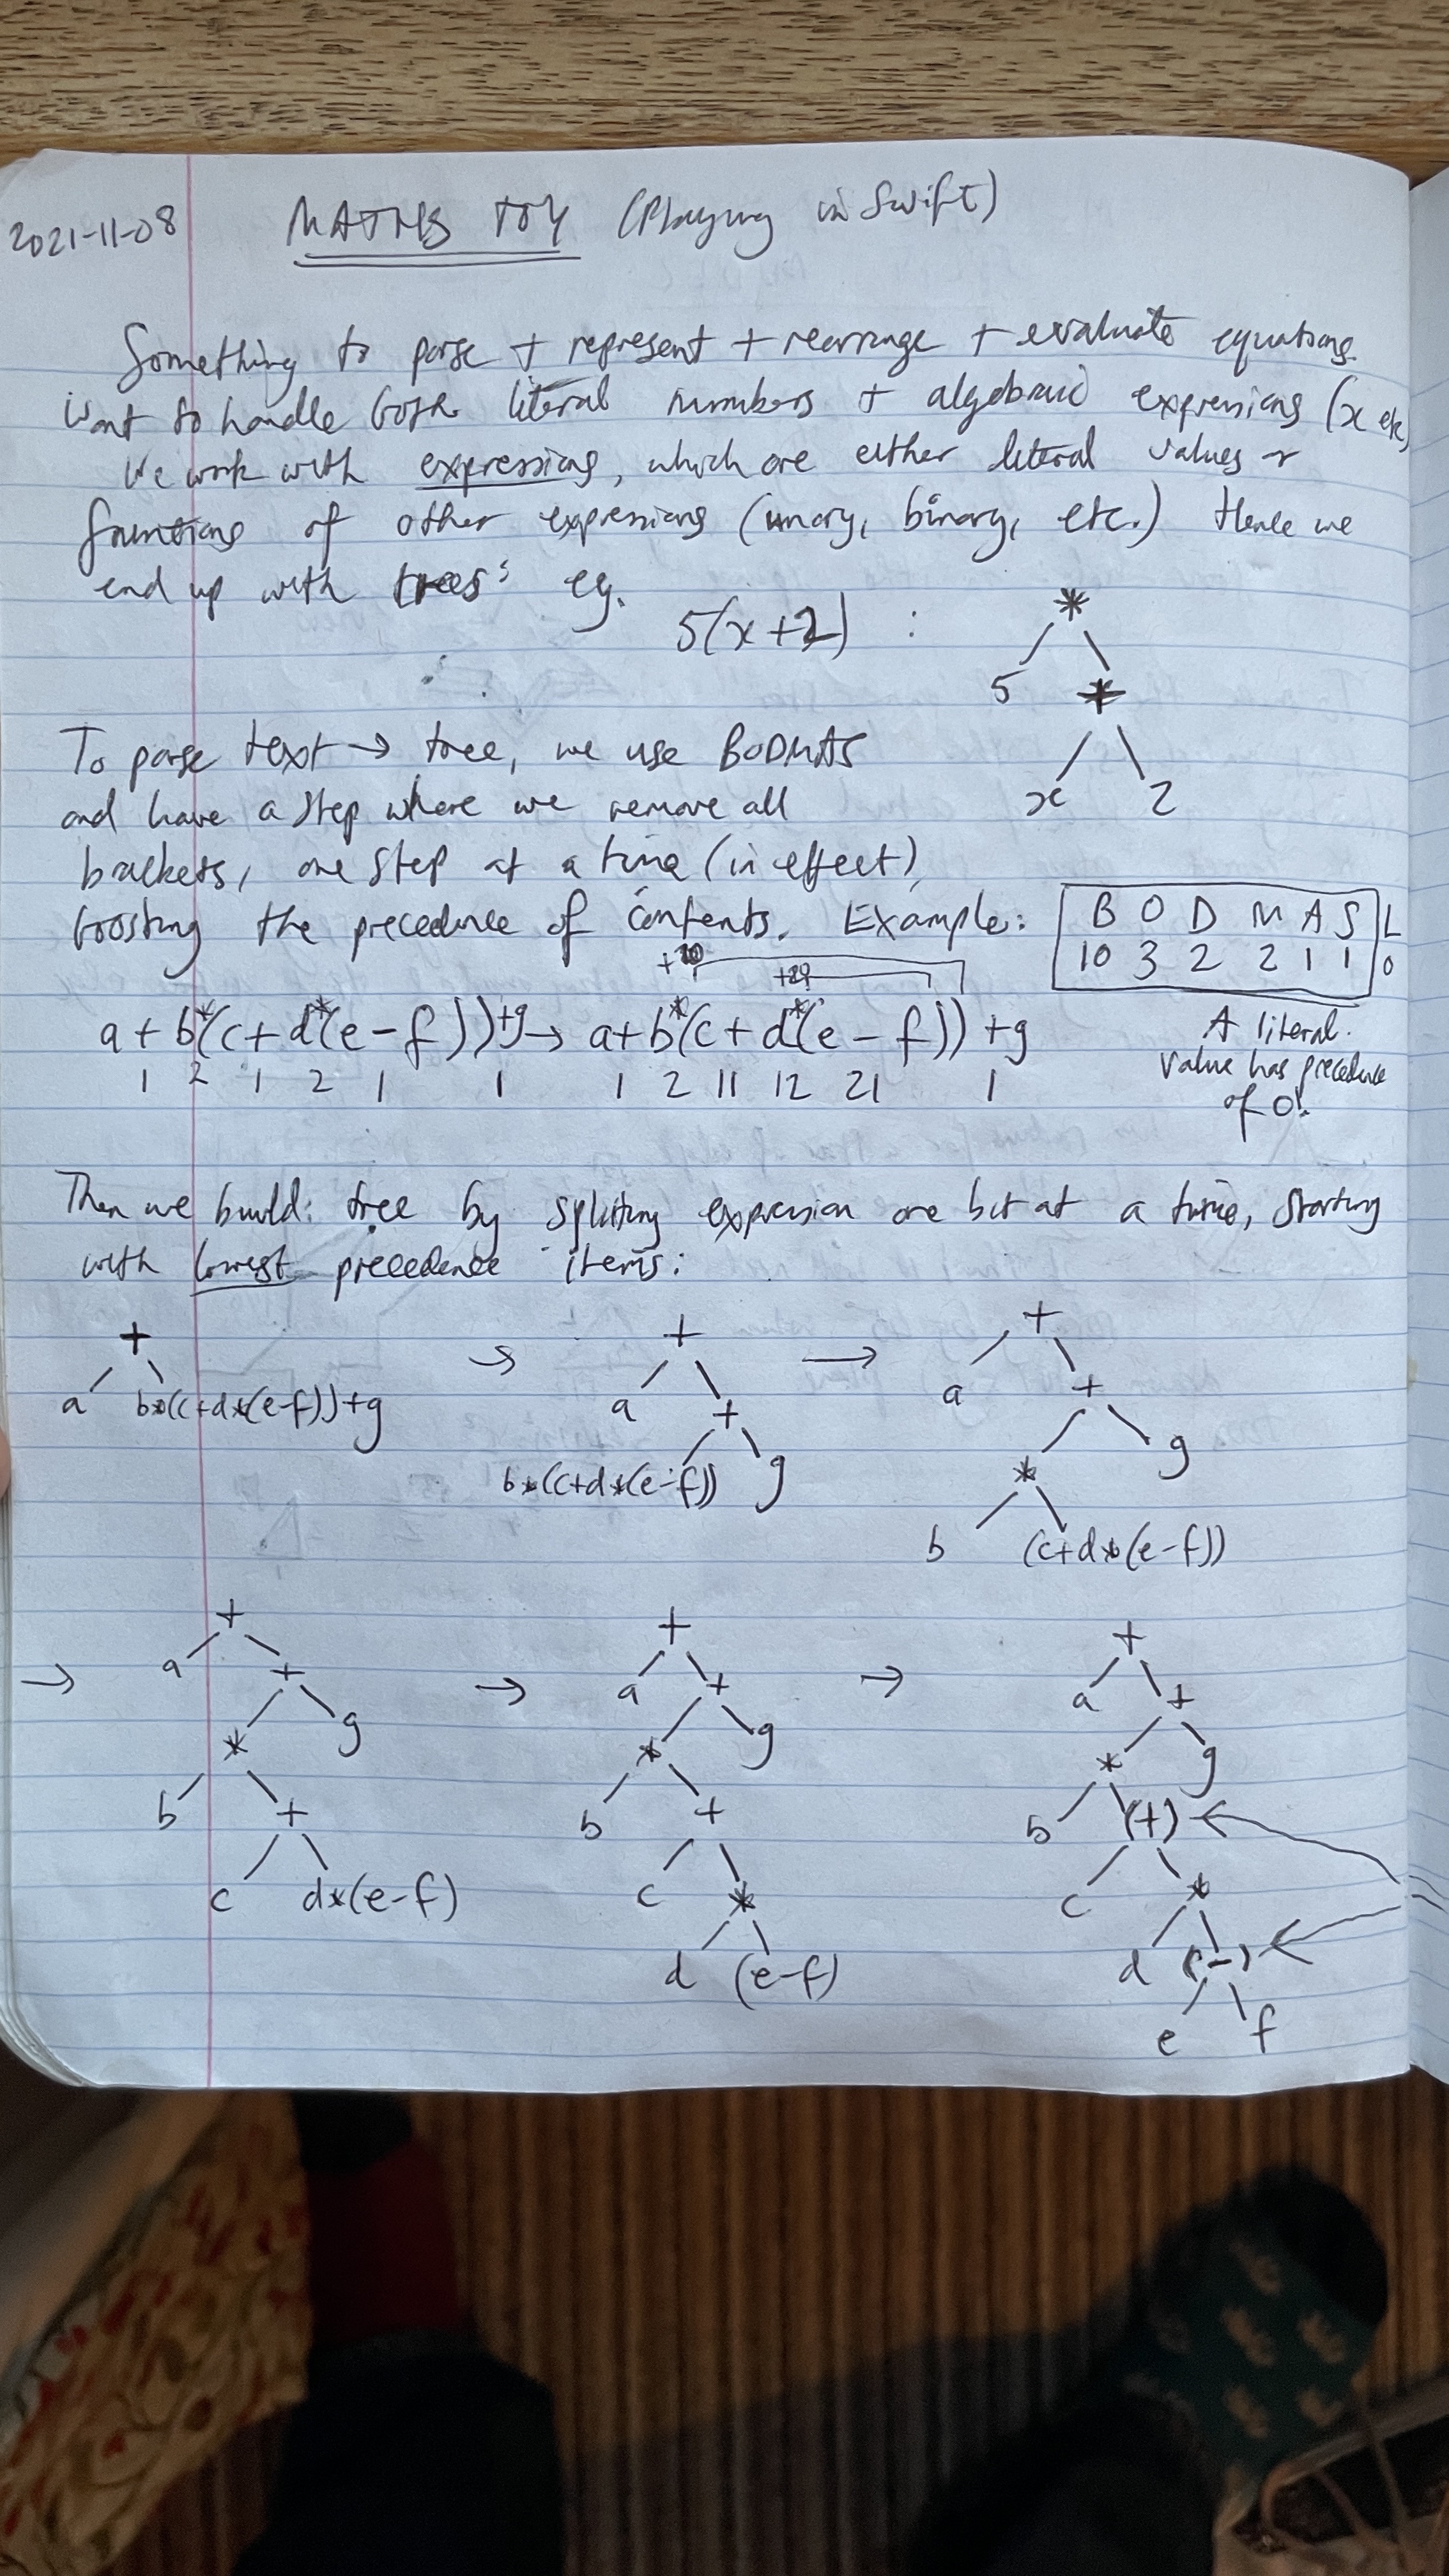 2021-11-08 MATHS TOY (Playing in Swift)
Something to parse + represent + rearrange + evaluate equations.
Want to handle both literal numbers + algebraic expressions (x etc)
We work with expressions, which are either literal values or
functions of other expressions (unary, binary, etc.) Hence we
end up with trees: eg.
5(x+2) :
*
5 +
x 2
To parse text → tree, we use BODMAS
and have a step where we remove all
brackets, one step at a time (in effect),
boosting the precedence of contents. Example:
B O D M A S L
10 3 2 2 1 1 0
A literal
value has precedence
of 0!
+10
a + b*(c+d*(e-f))+g → a+b*(c+d*(e-f))+g
1 2 1 2 1 1 1 2 11 12 21 1
Then we build tree by splitting expression one bit at a time, starting
with lowest precedence items:
+
a b*(c+d*(e-f))+g
→
+
a +
b*(c+d*(e-f)) g
→
+
a +
* g
b (c+d*(e-f))
→
+
a +
* g
b +
c d*(e-f)
→
+
a +
* g
b +
c *
d (e-f)
→
+
a +
* g
b (+)
c *
d (-)
e f